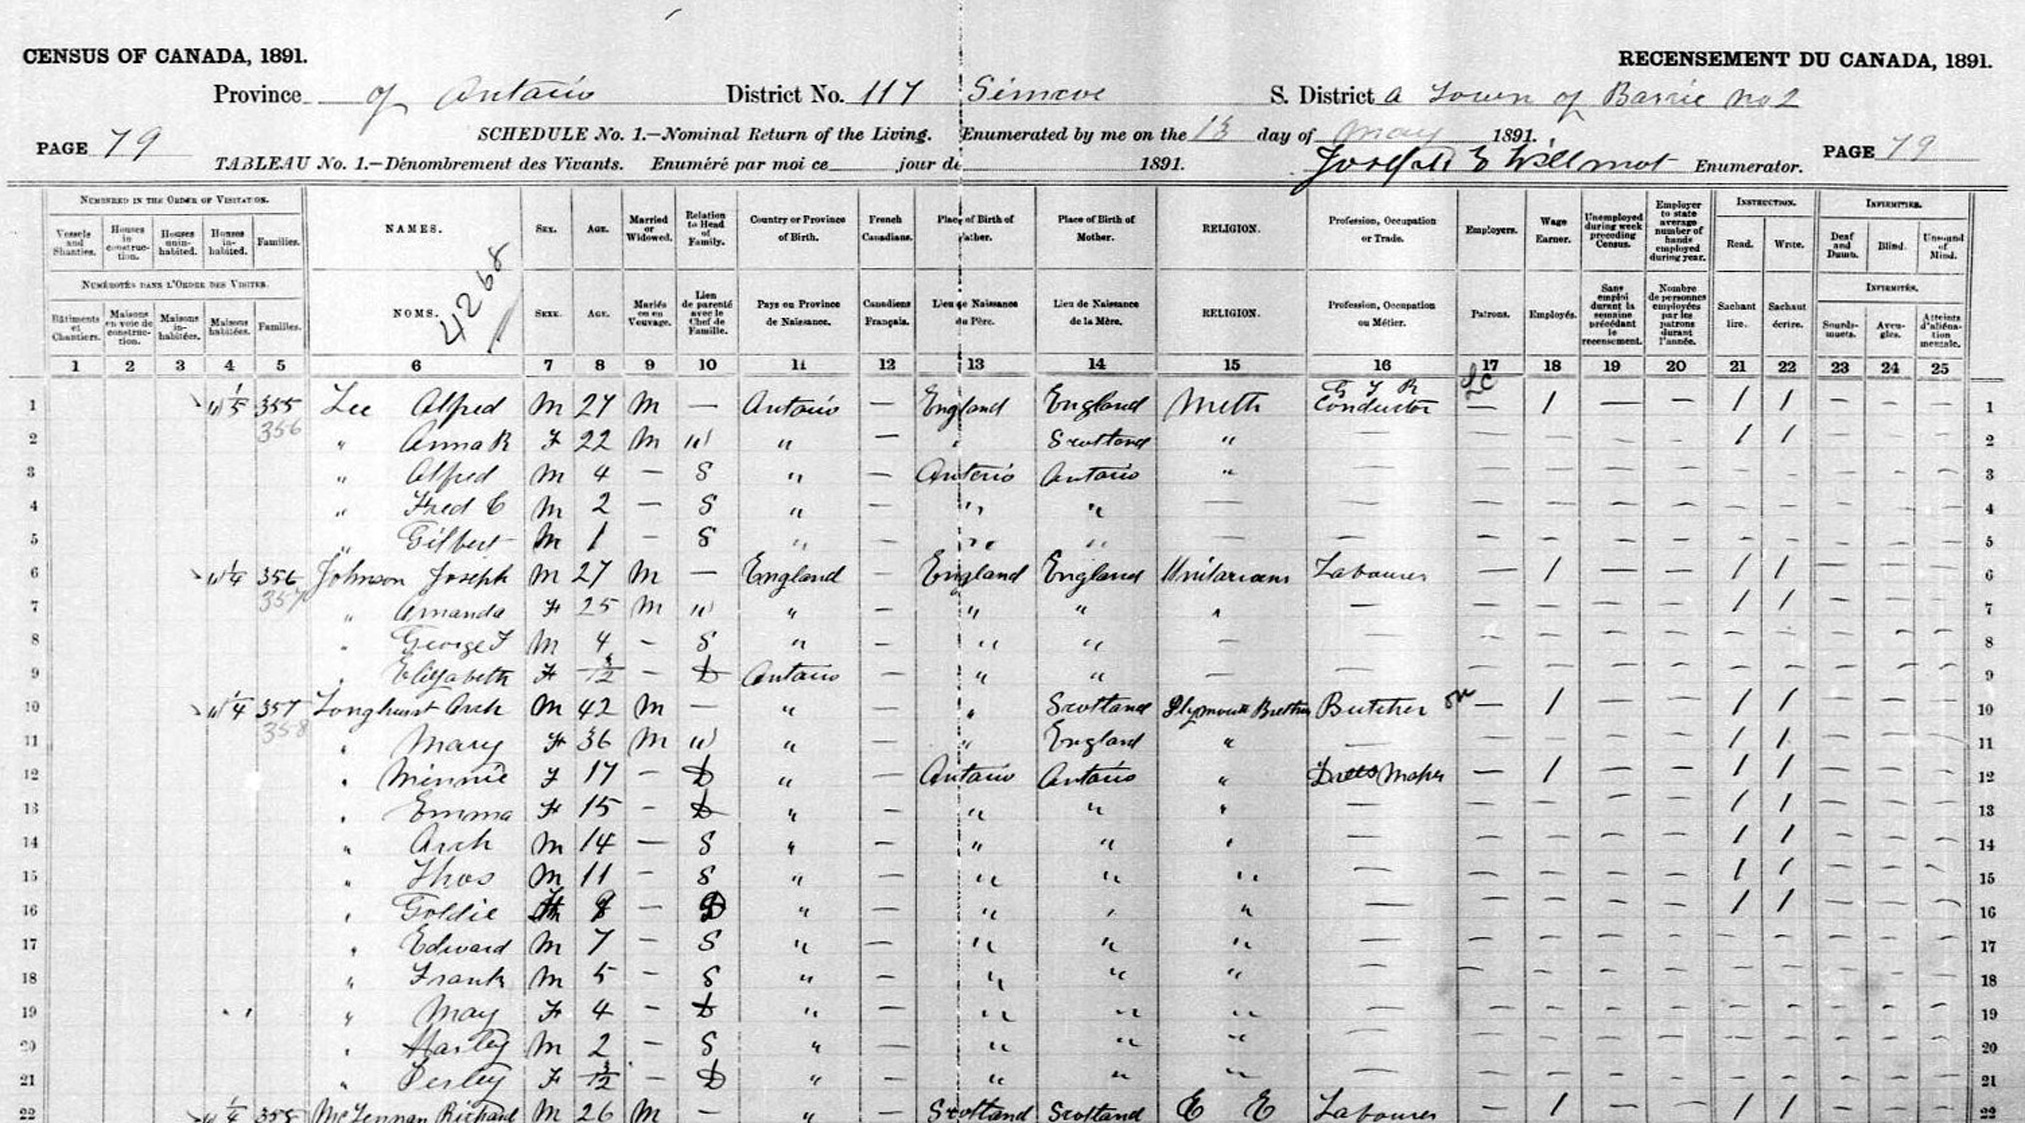 CENSUS OF CANADA, 1891. RECENSEMENT DU CANADA, 1891.
Province of Ontario District No. 117 Simcoe S. District a Town of Barrie No 2
PAGE 79 SCHEDULE No. 1.—Nominal Return of the Living. Enumerated by me on the 13 day of May 1891. PAGE 79
TABLEAU No. 1.—Dénombrement des Vivants. Enuméré par moi ce jour de 1891. Joseph E Willmot Enumerator.
NUMBERED IN THE ORDER OF VISITATION. NAMES. SEX. AGE. Married or Widowed. Relation to Head of Family. Country or Province of Birth. French Canadians. Place of Birth of Father. Place of Birth of Mother. RELIGION. Profession, Occupation or Trade. Employers. Wage Earner. Unemployed during week preceding Census. Employer to state average number of hands employed during year. INSTRUCTION. INFIRMITIES.
Vessels and Shanties. Houses in construction. Houses uninhabited. Houses inhabited. Families. Read. Write. Deaf and Dumb. Blind. Unsound of Mind.
4268
NUMÉROTÉS DANS L'ORDRE DES VISITES. NOMS. SEXE. AGE. Mariés ou en Veuvage. Lien de parenté avec le Chef de Famille. Pays ou Province de Naissance. Canadiens Français. Lieu de Naissance du Père. Lieu de Naissance de la Mère. RELIGION. Profession, Occupation ou Métier. Patrons. Employés. Sans emploi durant la semaine précédant le recensement. Nombre de personnes employées par les patrons durant l'année. INFIRMITÉS.
Bâtiments et Chantiers. Maisons en voie de construction. Maisons inhabitées. Maisons habitées. Familles. Sachant lire. Sachant écrire. Sourds-muets. Aveugles. Atteints d'aliénation mentale.
1 2 3 4 5 6 7 8 9 10 11 12 13 14 15 16 17 18 19 20 21 22 23 24 25
1 W 1/5 355 Lee Alfred M 27 M — Ontario — England England Meth G T R Conductor — 1 — — 1 1 — — — 1
356
2 " Anna R F 22 M W " — " Scotland " — — — — — 1 1 — — — 2
3 " Alfred M 4 — S " — Ontario Ontario " — — — — — — — — — — 3
4 " Fred C M 2 — S " — " " — — — — — — — — — — — 4
5 " Gilbert M 1 — S " — " " — — — — — — — — — — — 5
6 W 1/4 356 Johnson Joseph M 27 M — England — England England Unitarians Labourer — 1 — — 1 1 — — — 6
357
7 " Amanda F 25 M W " — " " " — — — — — 1 1 — — — 7
8 " George F M 4 — S " — " " — — — — — — — — — — — 8
9 " Elizabeth F 3/12 — D Ontario — " " — — — — — — — — — — — 9
10 W 1/4 357 Longhurst Arch M 42 M — " — " Scotland Plymouth Brethren Butcher — 1 — — 1 1 — — — 10
358
11 " Mary F 36 M W " — " England " — — — — — 1 1 — — — 11
12 " Minnie F 17 — D " — Ontario Ontario " Dress Maker — 1 — — 1 1 — — — 12
13 " Emma F 15 — D " — " " " — — — — — 1 1 — — — 13
14 " Arch M 14 — S " — " " " — — — — — 1 1 — — — 14
15 " Thos M 11 — S " — " " " — — — — — 1 1 — — — 15
16 " Goldie F — D " — " " " — — — — — 1 1 — — — 16
17 " Edward M 7 — S " — " " " — — — — — — — — — — 17
18 " Frank M 5 — S " — " " " — — — — — — — — — — 18
19 " May F 4 — D " — " " " — — — — — — — — — — 19
20 " Harley M 2 — S " — " " " — — — — — — — — — — 20
21 " Perley F 3/12 — D " — " " " — — — — — — — — — — 21
22 W 1/4 358 McLennan Richard M 26 M — " — Scotland Scotland E E Labourer — 1 — — 1 1 — — — 22